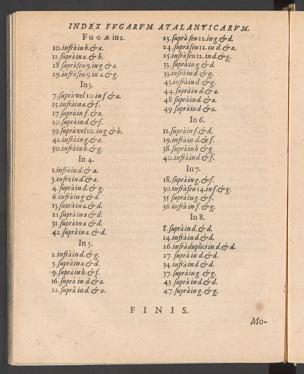 INDEX FUGARUM ATALANTICARUM.
Fugæ in 2.
10. infrà in b. & a.
12. suprà in a. & b.
28. suprà seu 9. in g & a.
29. infrà seu 9. in a & g.
In 3.
7. suprà vel 10 in f & a.
15. infrà in a. & f.
17. suprà in f. & a.
20. suprà in d & f.
39. suprà vel 10. in g & b.
42. infrà in g. & e.
50. infrà in b. & g.
In 4.
1. infrà in d & a.
3. infrà in d. & a.
4. suprà in d. & g.
6. infrà in g & d.
13. suprà in a & d.
21. suprà in a & d.
31. suprà in a & d.
42. suprà in a. & d.
In 5.
2. infrà in d. & g.
5. suprà in a. & d.
9. suprà in b. & f.
16. suprà in d & a.
22. suprà in d. & a.
23. suprà seu 12. in g. & d.
24. suprà seu 12. in d. & a.
25. infrà seu 12. in d. & g.
32. suprà in g & d.
33. infrà in d & g.
43. infrà in d. & g.
44. suprà in d & a.
48. suprà in d. & a.
49. suprà in d & a.
In 6.
11. suprà in f. & d.
19. infrà in d. & f.
38. suprà in b & g.
40. infrà in d & f.
In 7.
18. suprà in g. & f.
30. infrà seu 14. in f & g.
35. suprà in g. & f.
36. infrà in f & g.
In 8.
8. suprà in d. & d.
14. infrà in d. & d.
26. infrà duplici in d. & d.
27. suprà in d & d.
34. infrà in d & d.
37. suprà in g. & g.
45. suprà in d & d.
47. suprà in g. & g.
FINIS.
Mo-